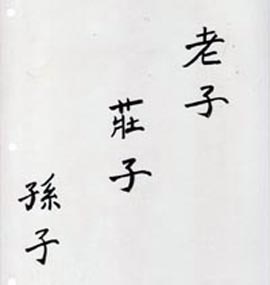 老子
莊子
孫子